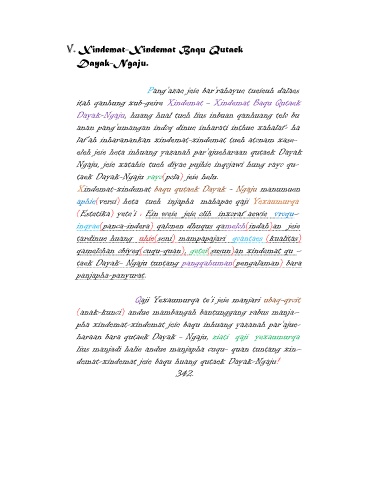 V. Xindemat-Xindemat Baqu Qutaek
Dayak-Ngaju.
Pang'azae jeie bar'rahayue tueieuh dalaes
itah qanhung xub-peire Xindemat - Xindemat Baqu Qutaek
Dayak-Ngaju, huang hual tueh lius inbuan qanhuang telo bu
anan pang'unangan indoq dinue inharati inthue xahalaf- ha
laf'ah inharanankan xindemat-xindemat tueh atonam xase-
eloh jeie heta inhuang yazanah par'ajueharaan qutaek Dayak
Ngaju, jeie xatahie tueh diyae pujhie inqojawi hung rayo qu-
taek Dayak-Ngaju rayo(pola) jeie helu.
Xindemat-xindemat baqu qutaek Dayak - Ngaju manumuen
aphie(versi) heta tueh injapha mahapae qaji Yexaumurqa
(Estetika) yete'i : Ein weie jeie olih inxoraf aewie
(panca-indera) qalonen dhuqus qameloh(indah)an jeie
tardinue huang uhie(seni) mampapajari (kualitas)
qamelohan ohiyoq(cuqu-quan), (susun)an xindemat qu -
taek Dayak- Ngaju tuntang panggahuman(pengalaman) bara
panjapha-panyurat.
Qaji Yexaumurqa te'i jeie manjari ubaq-qroit
(anak-kunci) andue mambangah bantunggang rabus manja-
pha xindemat-xindemat jeie baqu inhuang yazanah par'ajue-
haraan bara qutaek Dayak - Ngaju, xiati qaji yexaumurqa
lius manjadi halie andue manjapha cuqu- quan tuntang xin-
demat-xindemat jeie baqu huang qutaek Dayak-Ngaju!
342.